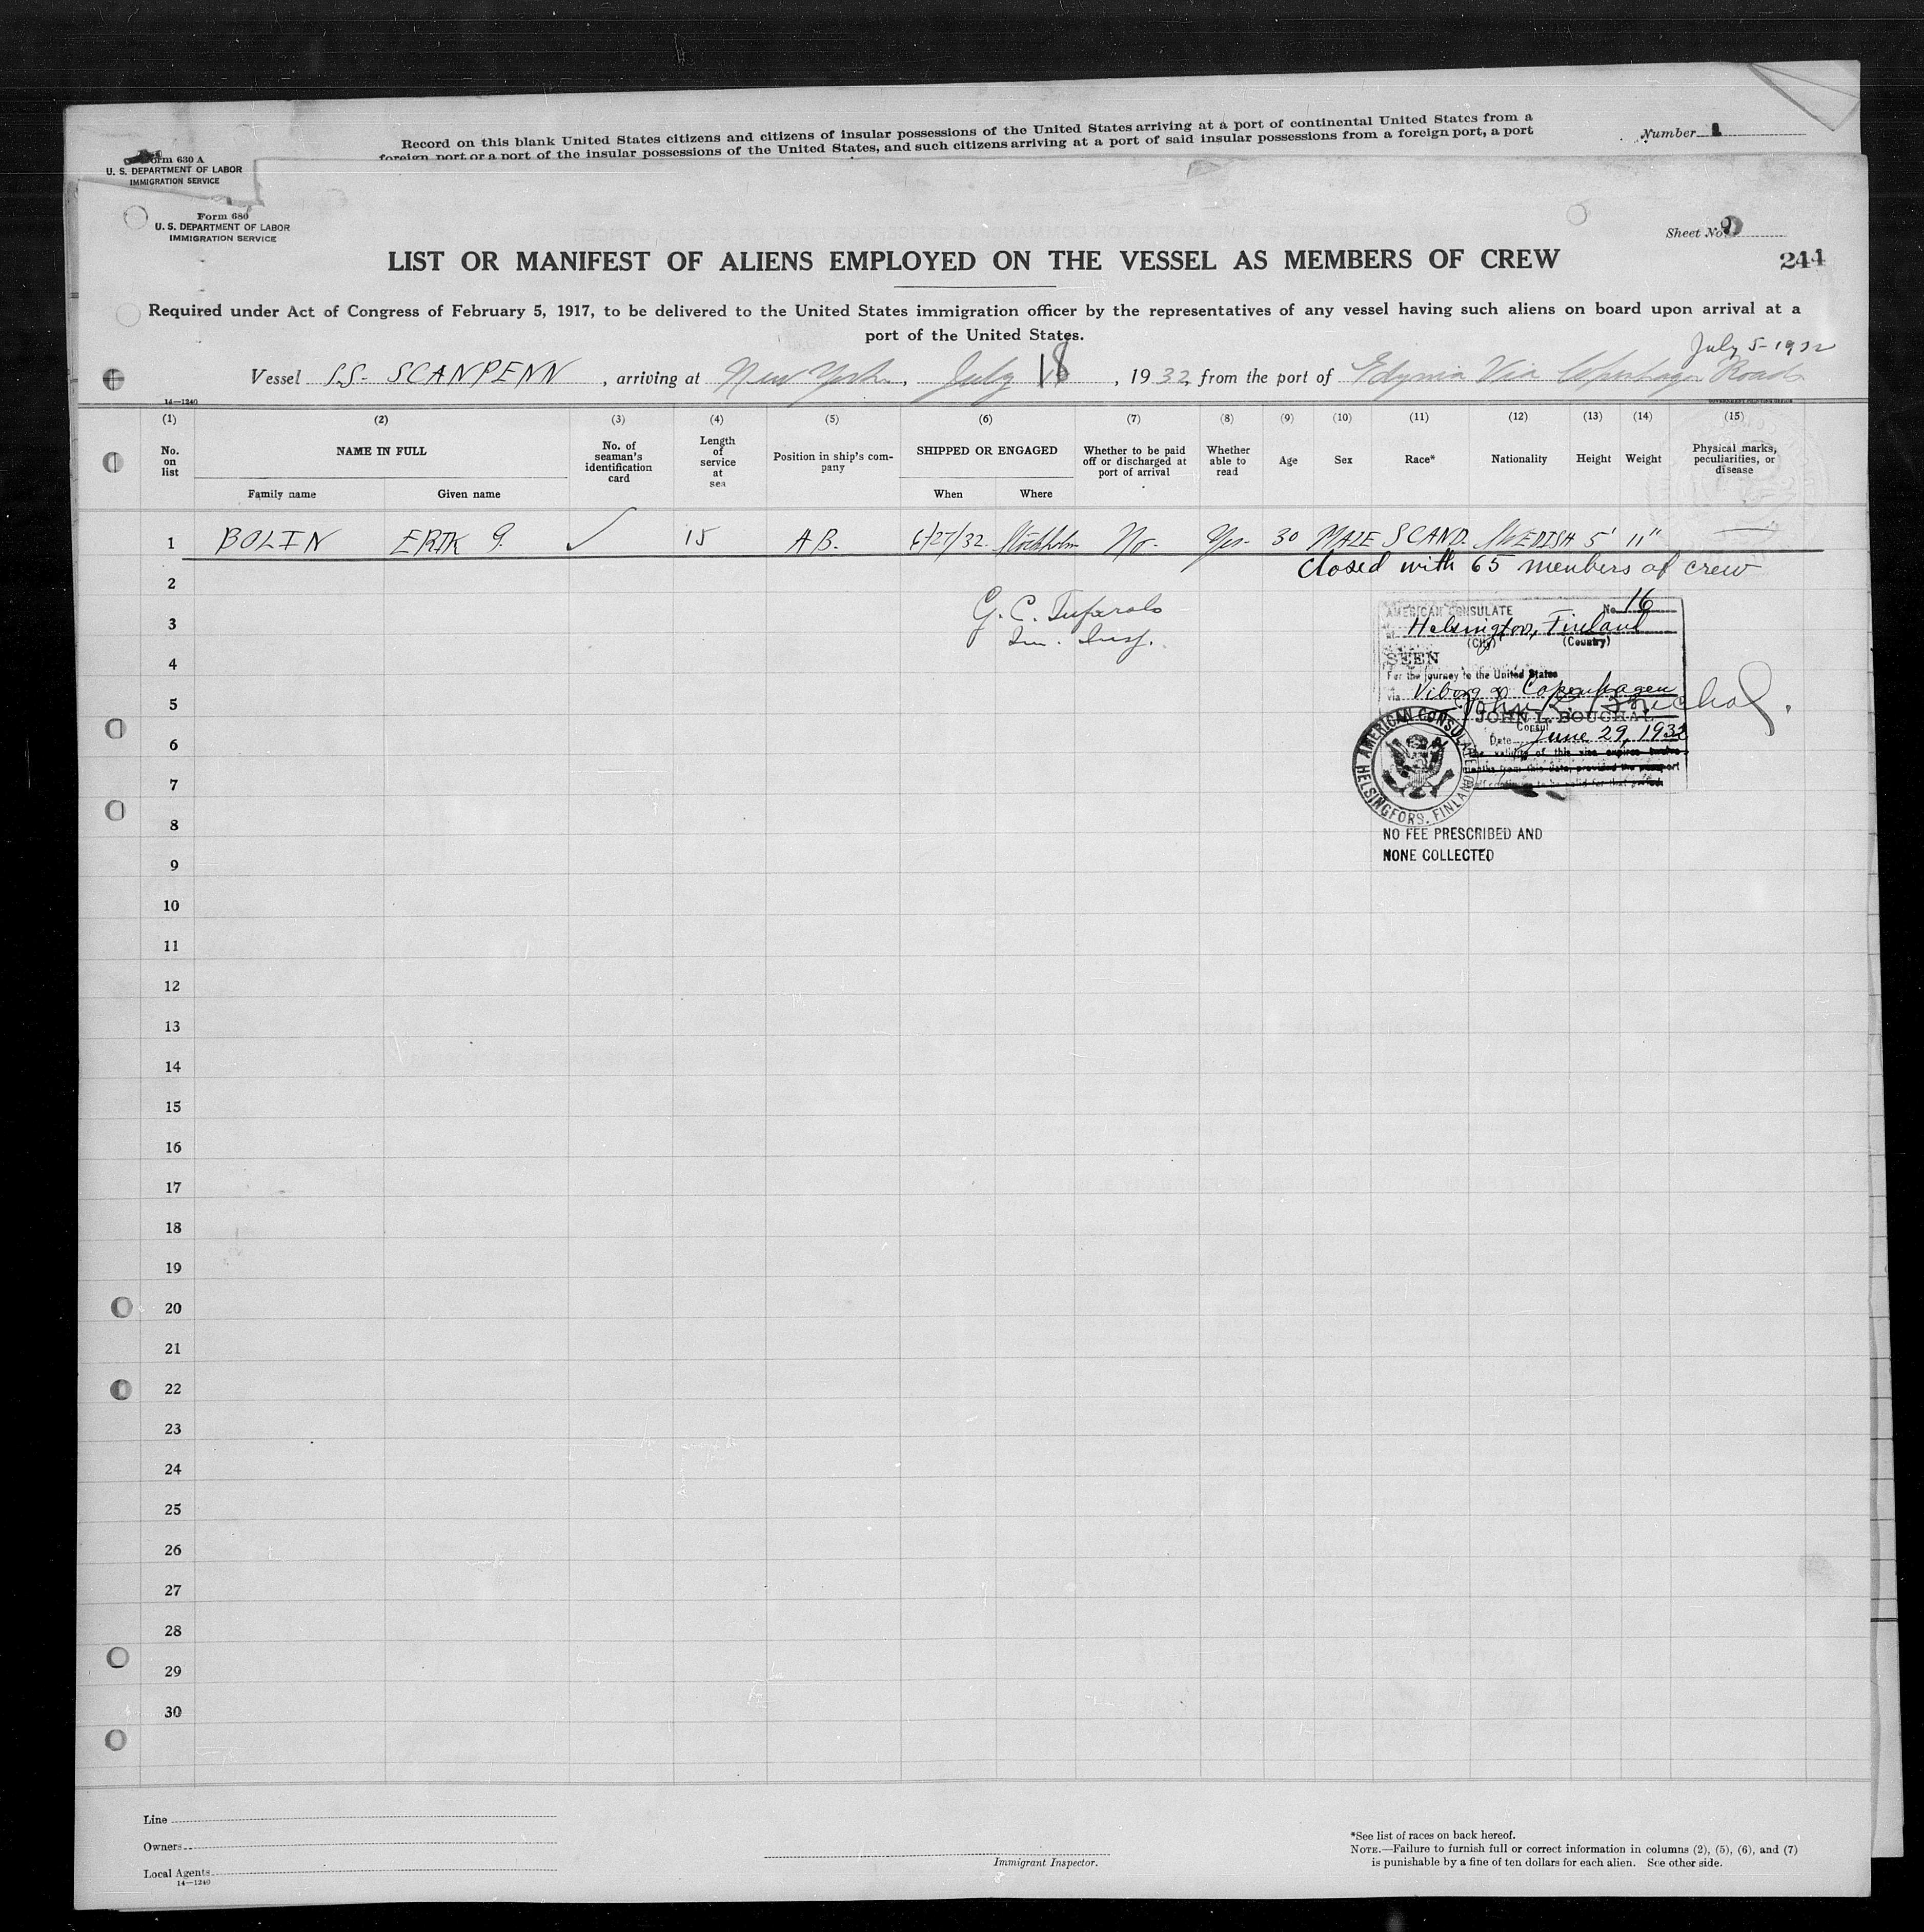 Record on this blank United States citizens and citizens of insular possessions of the United States arriving at a port of continental United States from a
foreign port or a port of the insular possessions of the United States, and such citizens arriving at a port of said insular possessions from a foreign port, a port
Number 1
Form 630 A
U. S. DEPARTMENT OF LABOR
IMMIGRATION SERVICE
Form 680
U. S. DEPARTMENT OF LABOR
IMMIGRATION SERVICE
Sheet No.
LIST OR MANIFEST OF ALIENS EMPLOYED ON THE VESSEL AS MEMBERS OF CREW
244
Required under Act of Congress of February 5, 1917, to be delivered to the United States immigration officer by the representatives of any vessel having such aliens on board upon arrival at a
port of the United States.
July 5-1932
Vessel S.S. SCANPENN, arriving at New York, July 18, 1932, from the port of Gdynia Via Copenhagen Roads
14—1240
(1) (2) (3) (4) (5) (6) (7) (8) (9) (10) (11) (12) (13) (14) (15)
No. on list
NAME IN FULL
Family name
Given name
No. of seaman's identification card
Length of service at sea
Position in ship's company
SHIPPED OR ENGAGED
When
Where
Whether to be paid off or discharged at port of arrival
Whether able to read
Age
Sex
Race*
Nationality
Height
Weight
Physical marks, peculiarities, or disease
1 BOLIN ERIK G. ✓ 15 AB. 6/27/32. Stockholm No. Yes. 30 MALE SCAND. SWEDISH 5' 11" —
Closed with 65 members of crew
2
3
4
5
6
7
8
9
10
11
12
13
14
15
16
17
18
19
20
21
22
23
24
25
26
27
28
29
30
G. C. Tufarolo
Im. Insp.
AMERICAN CONSULATE No. 16
at Helsingfors, Finland
(City) (Country)
SEEN
For the journey to the United States
via Viborg & Copenhagen
John L. Bouchal.
JOHN L. BOUCHAL
Consul
Date June 29, 1932
The validity of this visa expires twelve
months from this date, provided the passport
continues to be valid for that period.
AMERICAN CONSULATE HELSINGFORS, FINLAND
NO FEE PRESCRIBED AND
NONE COLLECTED
Line
Owners
Local Agents
14—1240
Immigrant Inspector.
*See list of races on back hereof.
NOTE.—Failure to furnish full or correct information in columns (2), (5), (6), and (7)
is punishable by a fine of ten dollars for each alien. See other side.